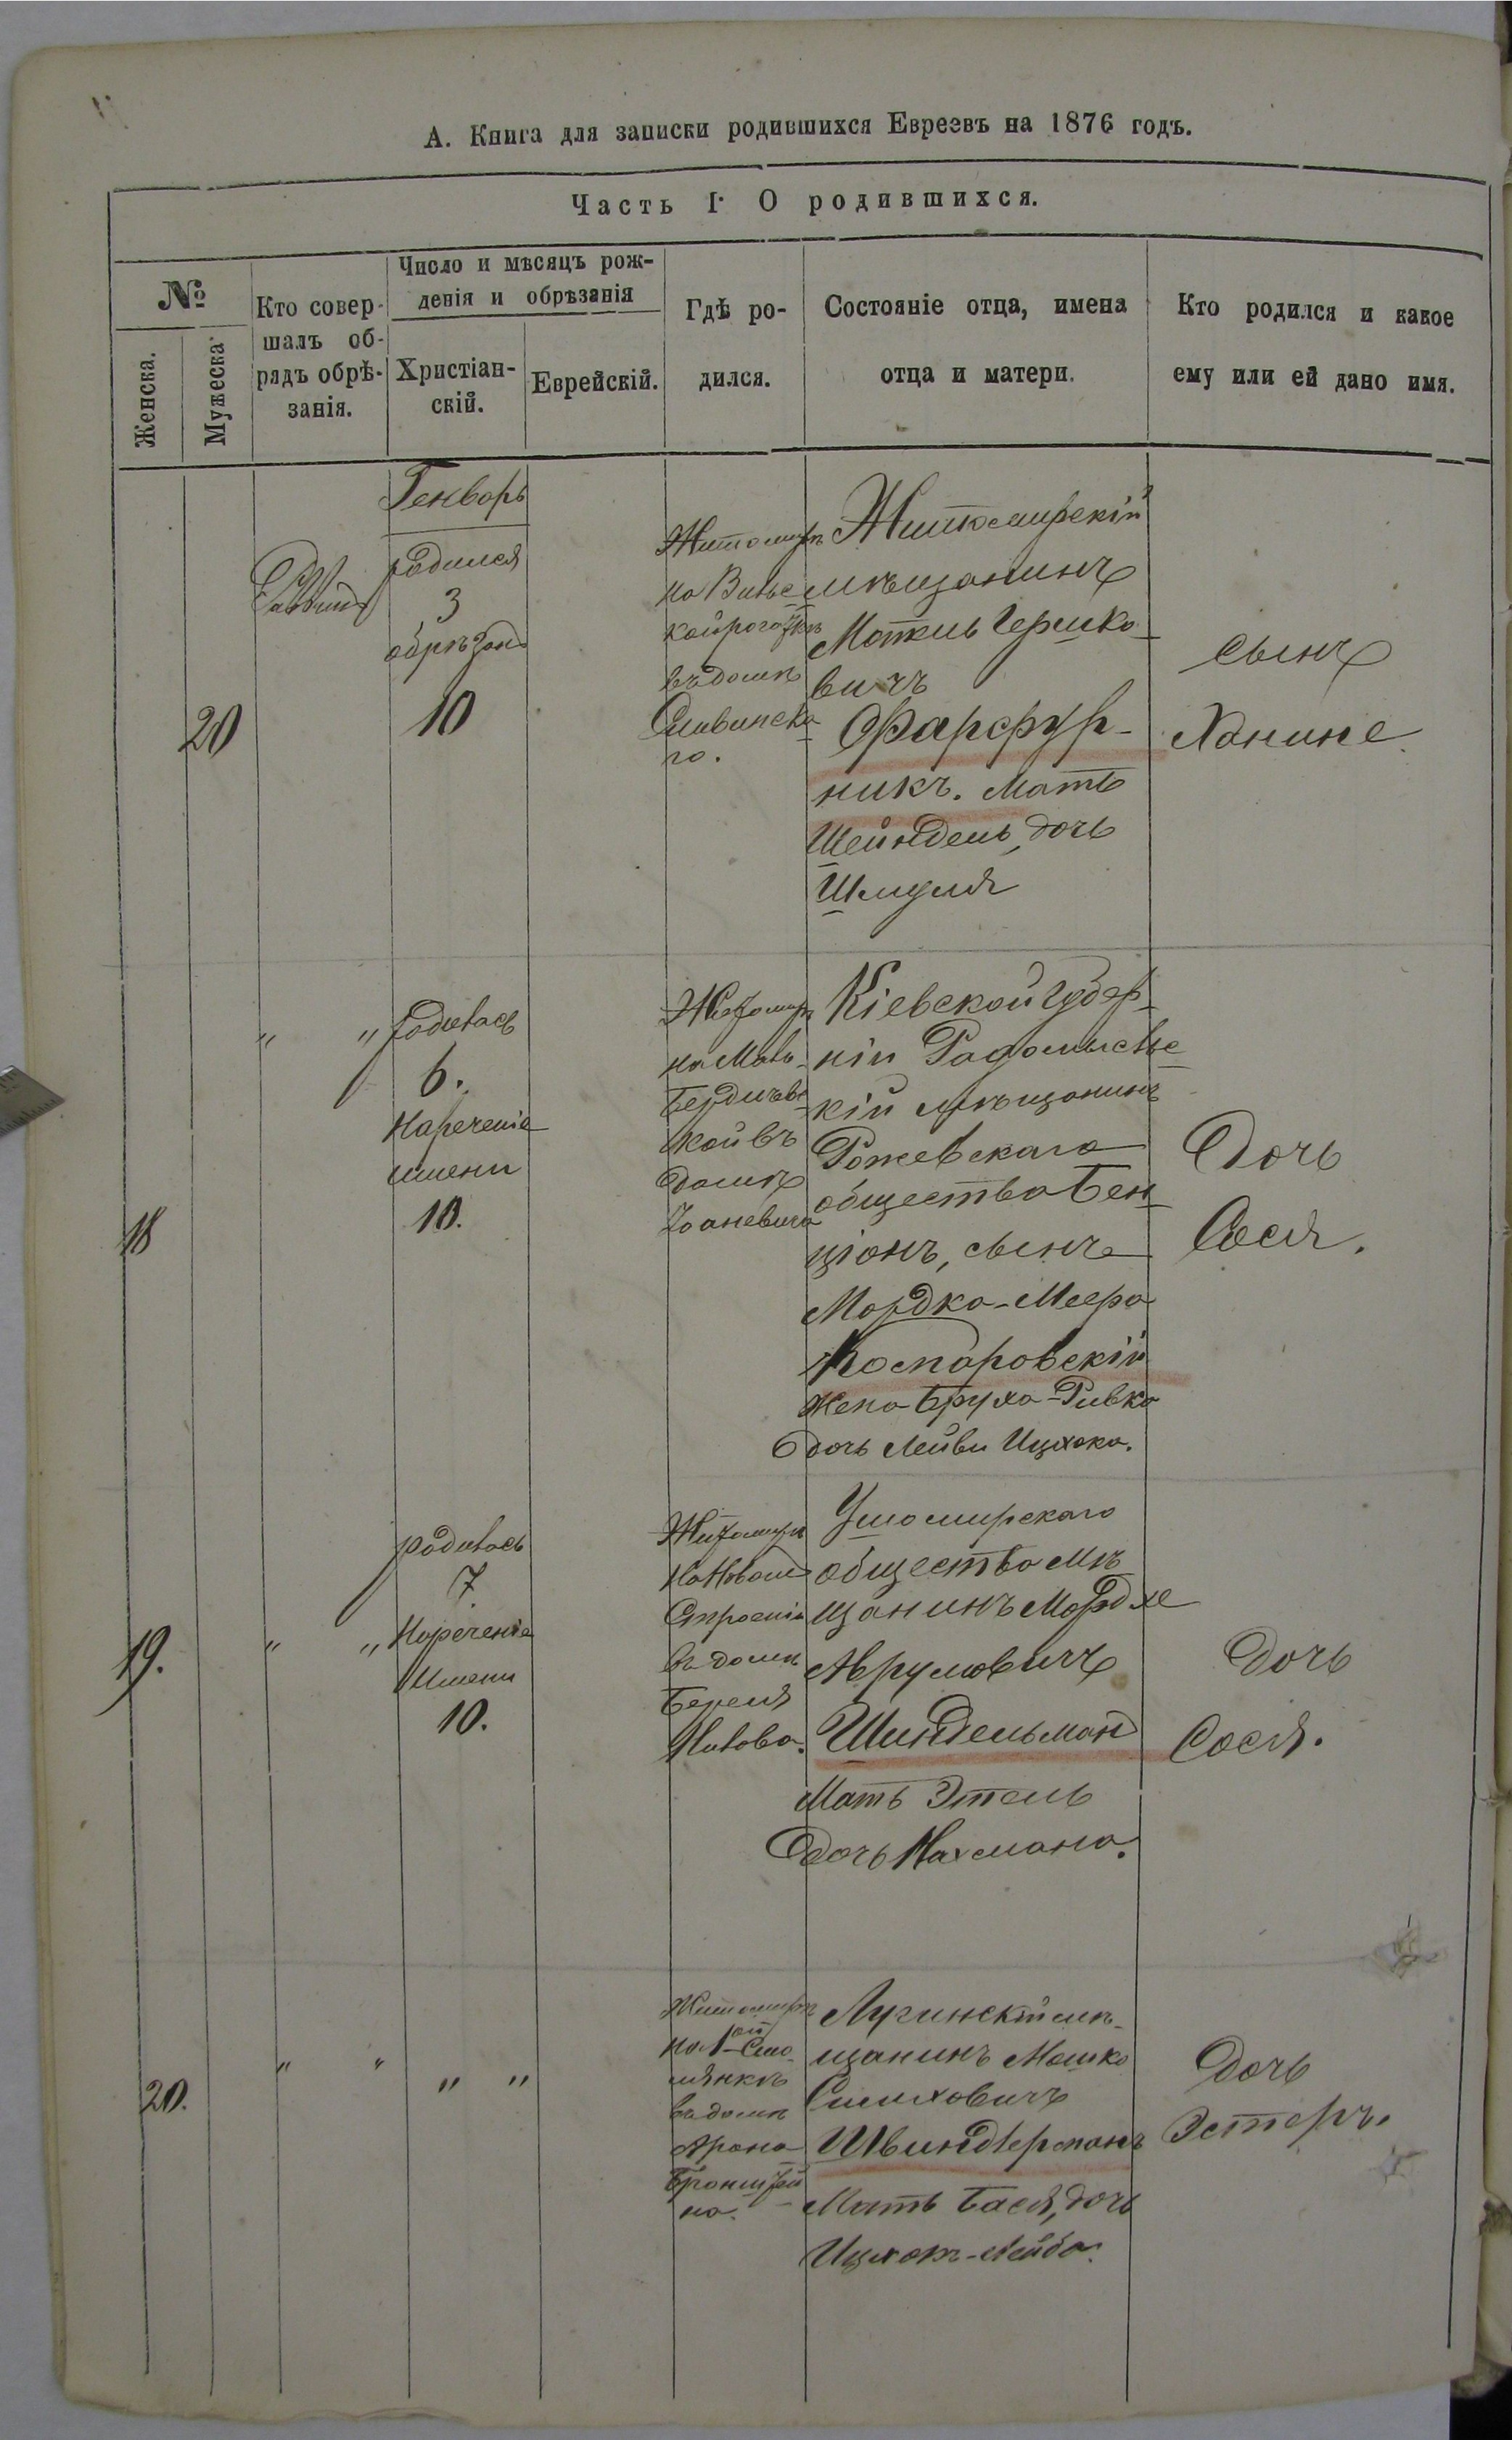 А. Книга для записки родившихся Евреевъ на 1876 годъ.
Часть I. О родившихся.
№
Женска.
Мужеска.
Кто совер-
шалъ об-
рядъ обрѣ-
занія.
Число и мѣсяцъ рож-
денія и обрѣзанія
Христіан-
скій.
Еврейскій.
Гдѣ ро-
дился.
Состояніе отца, имена
отца и матери.
Кто родился и какое
ему или ей дано имя.
20
Раввинъ
Генварь
родился
3
обрѣзанъ
10
Житомиръ
въ домѣ
го.
Житомирскій
мѣщанинъ
Мотель Гершко-
вичъ
Фарфур-
никъ. Мать
Шейндель, дочь
Шмуля
сынъ
Ханине
18
" "
родилась
6.
Нареченіе
имени
10.
Житомиръ
на Мало-
Бердичевс-
кой въ
домѣ
Кіевской губер-
ніи Радомысльс-
кій мѣщанинъ
Рожевскаго
общества Бен-
ціонъ, сынъ
Мордко-Меера
Комаровскій
жена Бруха-Ривка
дочь Лейви Ицхока.
Дочь
Сося.
19.
" "
родилась
7
Нареченіе
Имени
10.
Житомиръ
на Новомъ
Строеніи
въ домѣ
Береля
Ушомирскаго
общества мѣ
щанинъ Мордхе
Аврумовичъ
Шиндельман
Мать Этель
Дочь Нахмана.
Дочь
Сося.
20.
" "
" "
Житомиръ
на 1ой Смо-
лянкѣ
въ домѣ
Арона
Бронштей
на.
Лугинскій мѣ-
щанинъ Мошко
Симховичъ
Швиндерманъ
Мать Бася, дочь
Ицхок-Лейба.
Дочь
Эстеръ.